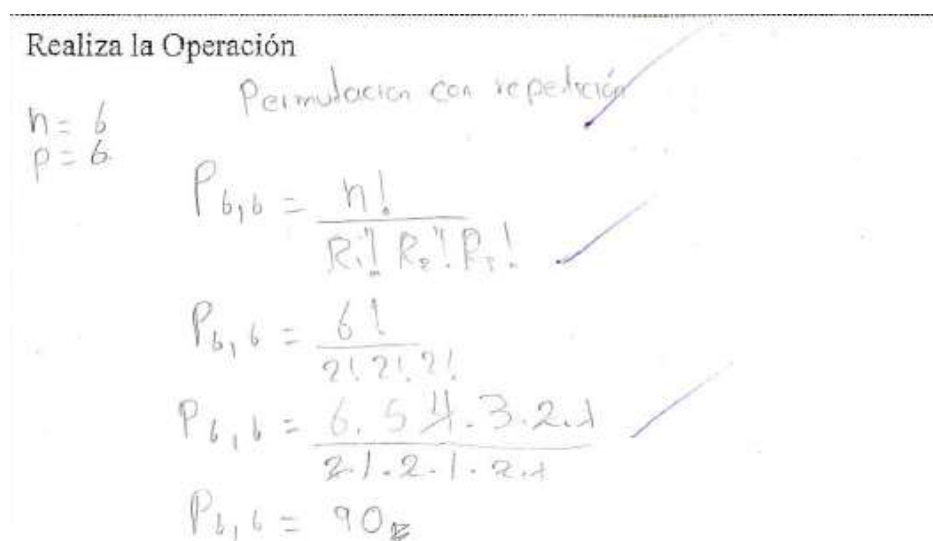 Realiza la Operación
Permutacion con repetición
n = 6
p = 6
P6,6 = n!
R1! R2! R3!
P6,6 = 6!
2! 2! 2!
P6,6 = 6.5 4.3.2.1
2.1.2.1.2.1
P6,6 = 90